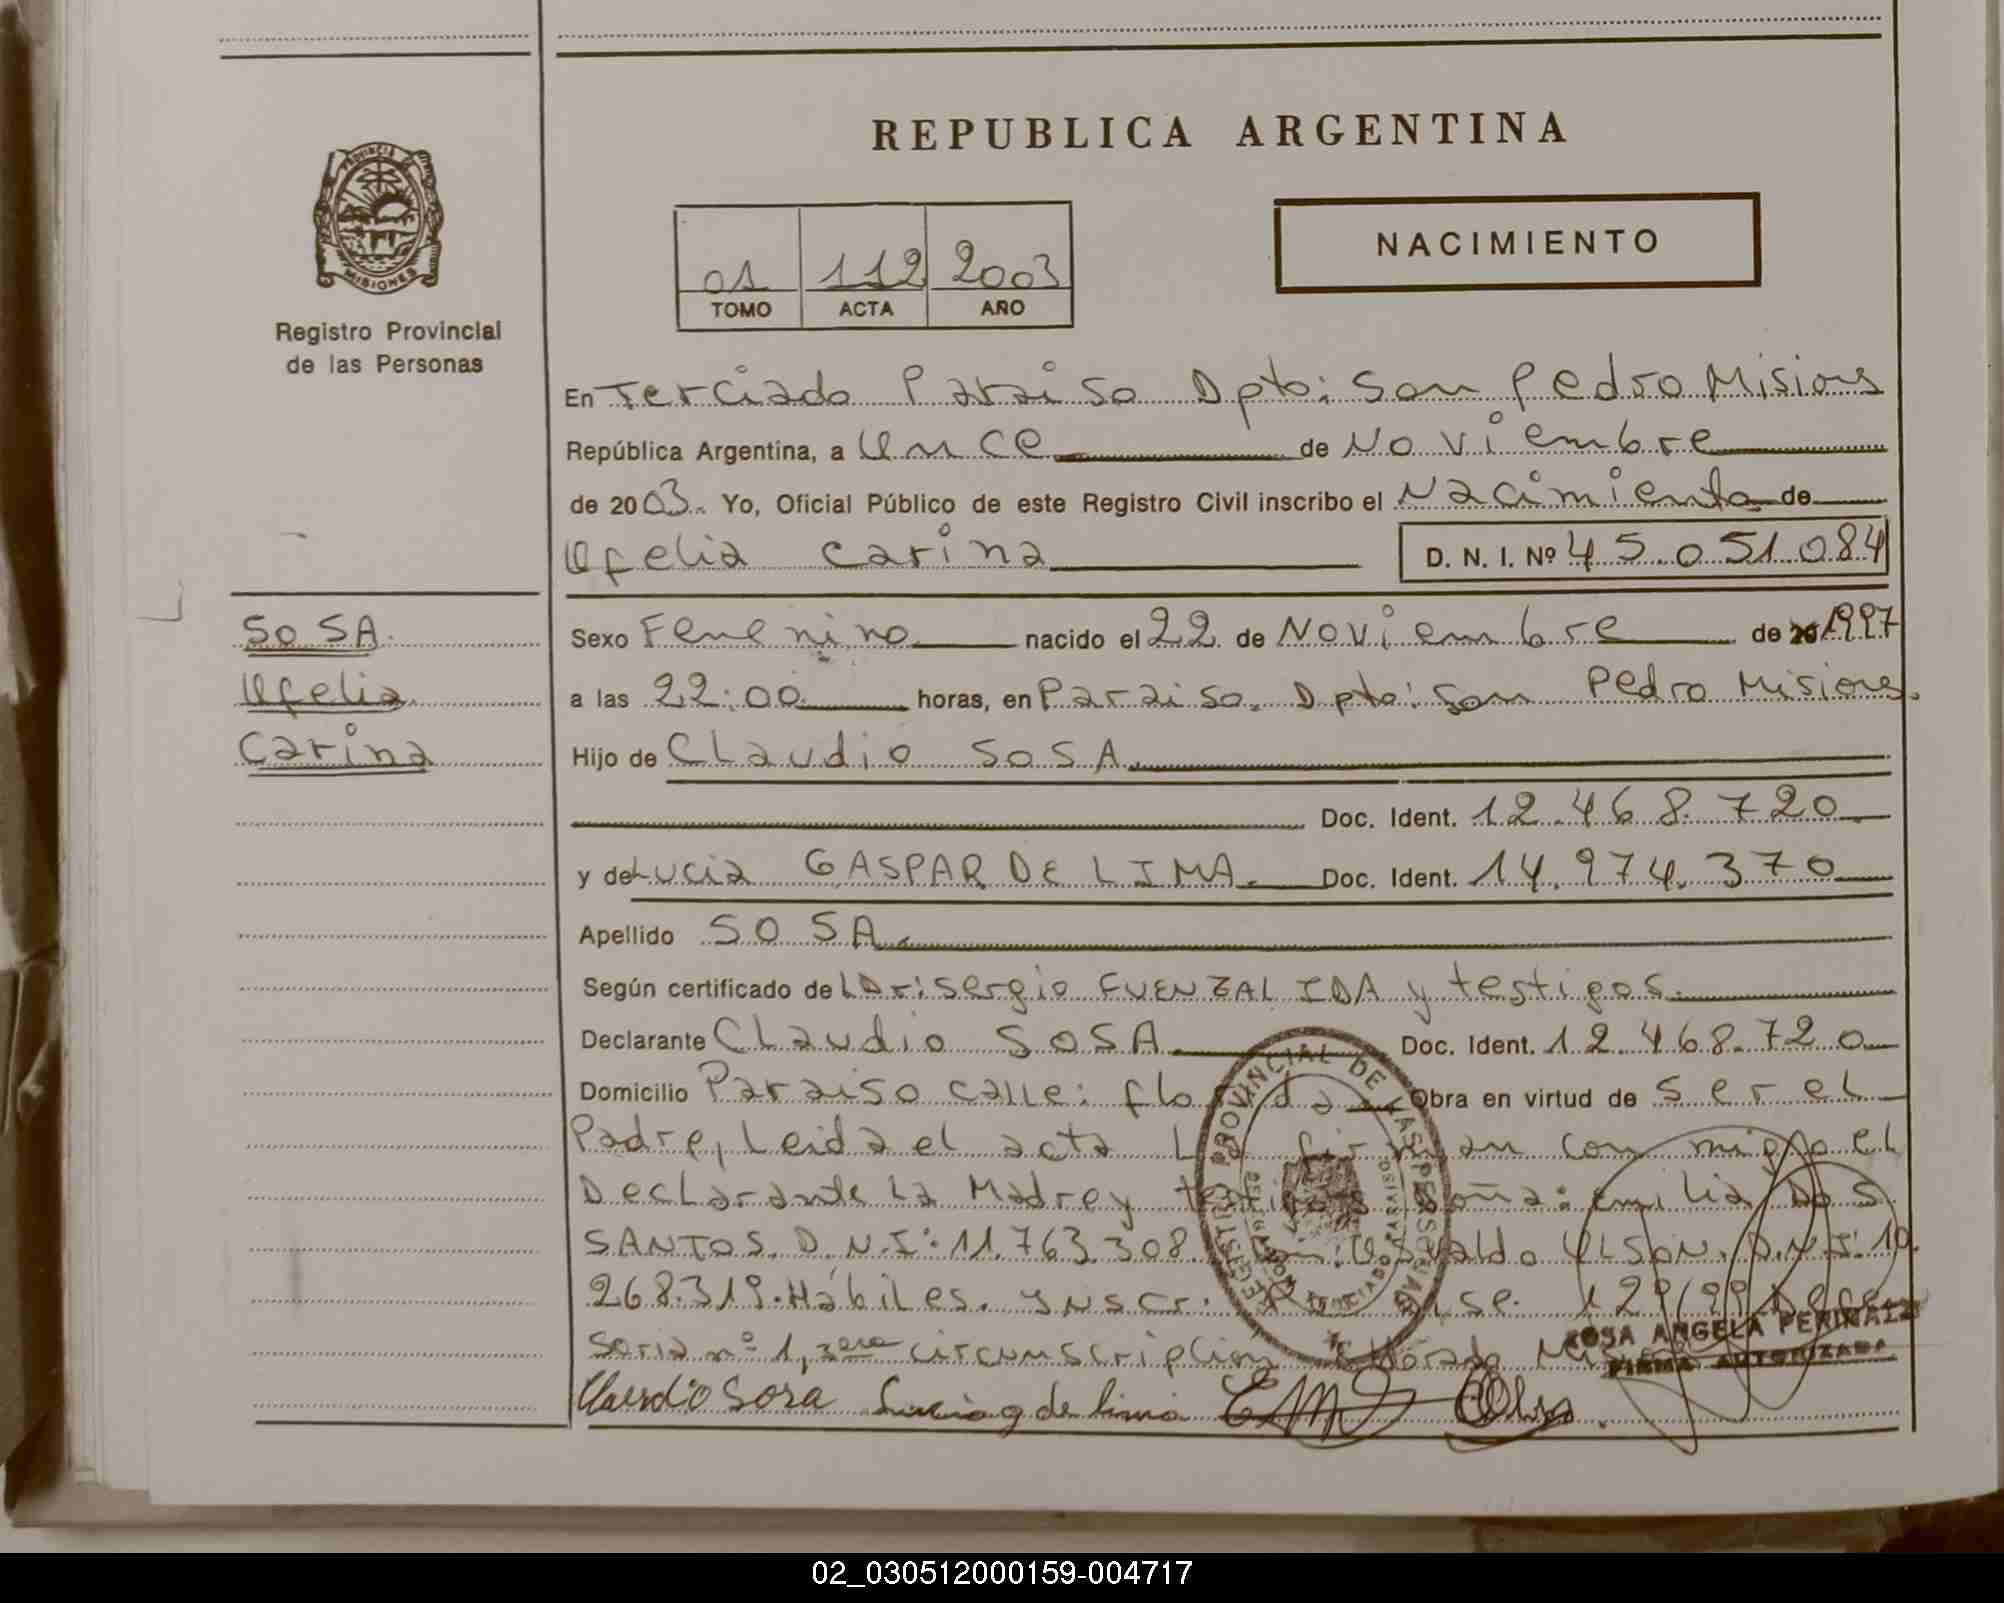 REPUBLICA ARGENTINA
PROVINCIA DE MISIONES
Registro Provincial
de las Personas
NACIMIENTO
01 112 2003
TOMO ACTA AÑO
En Terciado Paraiso Dpto: San Pedro Misiones
República Argentina, a Once de Noviembre
de 2003. Yo, Oficial Público de este Registro Civil inscribo el Nacimiento de
Ofelia Carina D. N. I. Nº 45.051.084
SOSA.
Ofelia
Carina
Sexo Femenino nacido el 22 de Noviembre de 20 1997
a las 22:00 horas, en Paraiso. Dpto: San Pedro Misiones.
Hijo de Claudio SOSA.
Doc. Ident. 12.468.720
y de Lucia GASPAR DE LIMA. Doc. Ident. 14.974.370
Apellido SOSA.
Según certificado de Dr: Sergio FUENZALIDA y testigos.
Declarante Claudio SOSA. Doc. Ident. 12.468.720
Domicilio Paraiso calle: florida Obra en virtud de ser el
Padre, Leida el acta La firman con migo el
Declarante La Madre y testigos Doña: emilia DOS
SANTOS. D.N.I: 11.763.308. Osvaldo OLSON. D.N.I: 10.
268.319. Hábiles. Inscr. Dise. 129/99 Defen
soria nº 1, 3era circumscripción Eldorado
REGISTRO PROVINCIAL DE LAS PERSONAS
TERCIADO PARAISO
ROSA ANGELA
FIRMA AUTORIZADA
Claudio Sosa Lucia g de lima
02_030512000159-004717